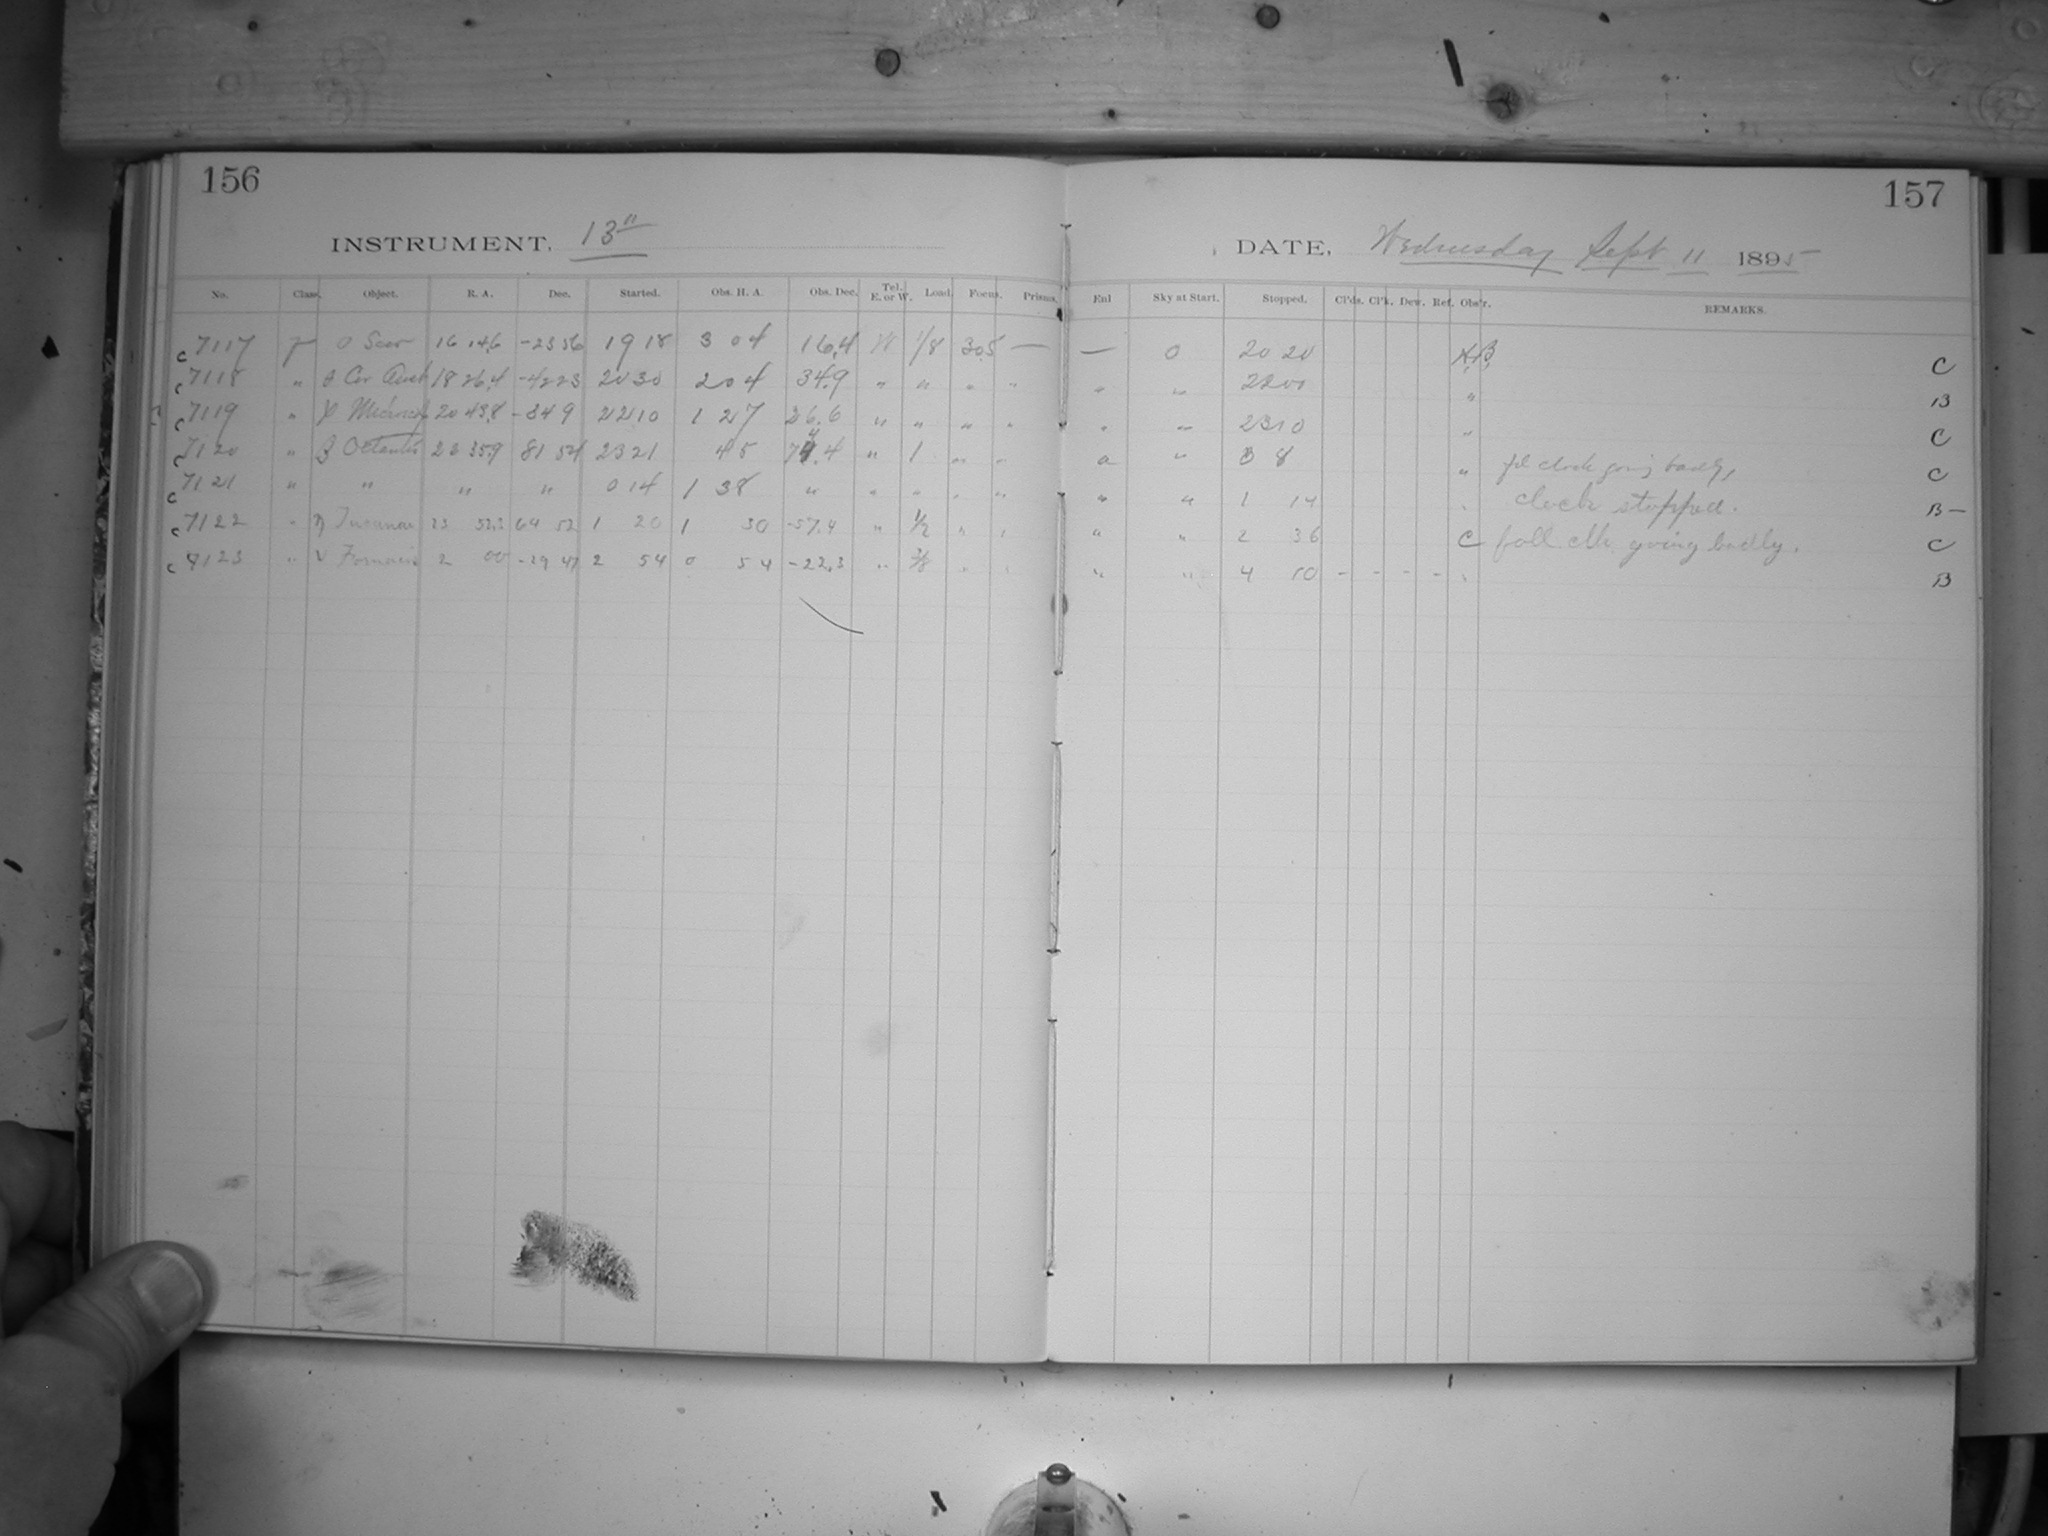 156
INSTRUMENT, 13"
No. Class. Object. R. A. Dec. Started. Obs. H. A. Obs. Dec. Tel. E. or W. Load. Focus. Prisms.
c 7117 σ Scor 16 14.6 -25 56 19 18 3 04 16.4 W 1/8 30.5 —
c 7118 " θ Cor Aust 18 26.4 -42 23 20 30 2 04 34.9 " " " "
c 7119 " Microsc 20 43.8 -34 9 22 10 1 27 26.6 " " " "
c 7120 " Octantis 23 35.9 81 54 23 21 45 74.4 " 1 " "
c 7121 " " " " 0 14 1 38 " " " " "
c 7122 " η Tucanae 23 52.2 64 52 1 20 1 30 -57.4 " 1/2 " "
c 7123 " ν Fornacis 2 00 -29 47 2 54 0 54 -22.3 " " "
157
DATE, Wednesday Sept 11 1895
Enl Sky at Start. Stopped. Cl'ds. Cl'k. Dew. Ref. Obs'r. REMARKS.
— 0 20 20 A.B. C
" " 22 00 " B
" " 23 10 " C
" " 0 8 " fol clock going badly, C
" " 1 14 " clock stopped. B—
" " 2 36 C foll clk going badly. C
" " 4 10 - - - - " B